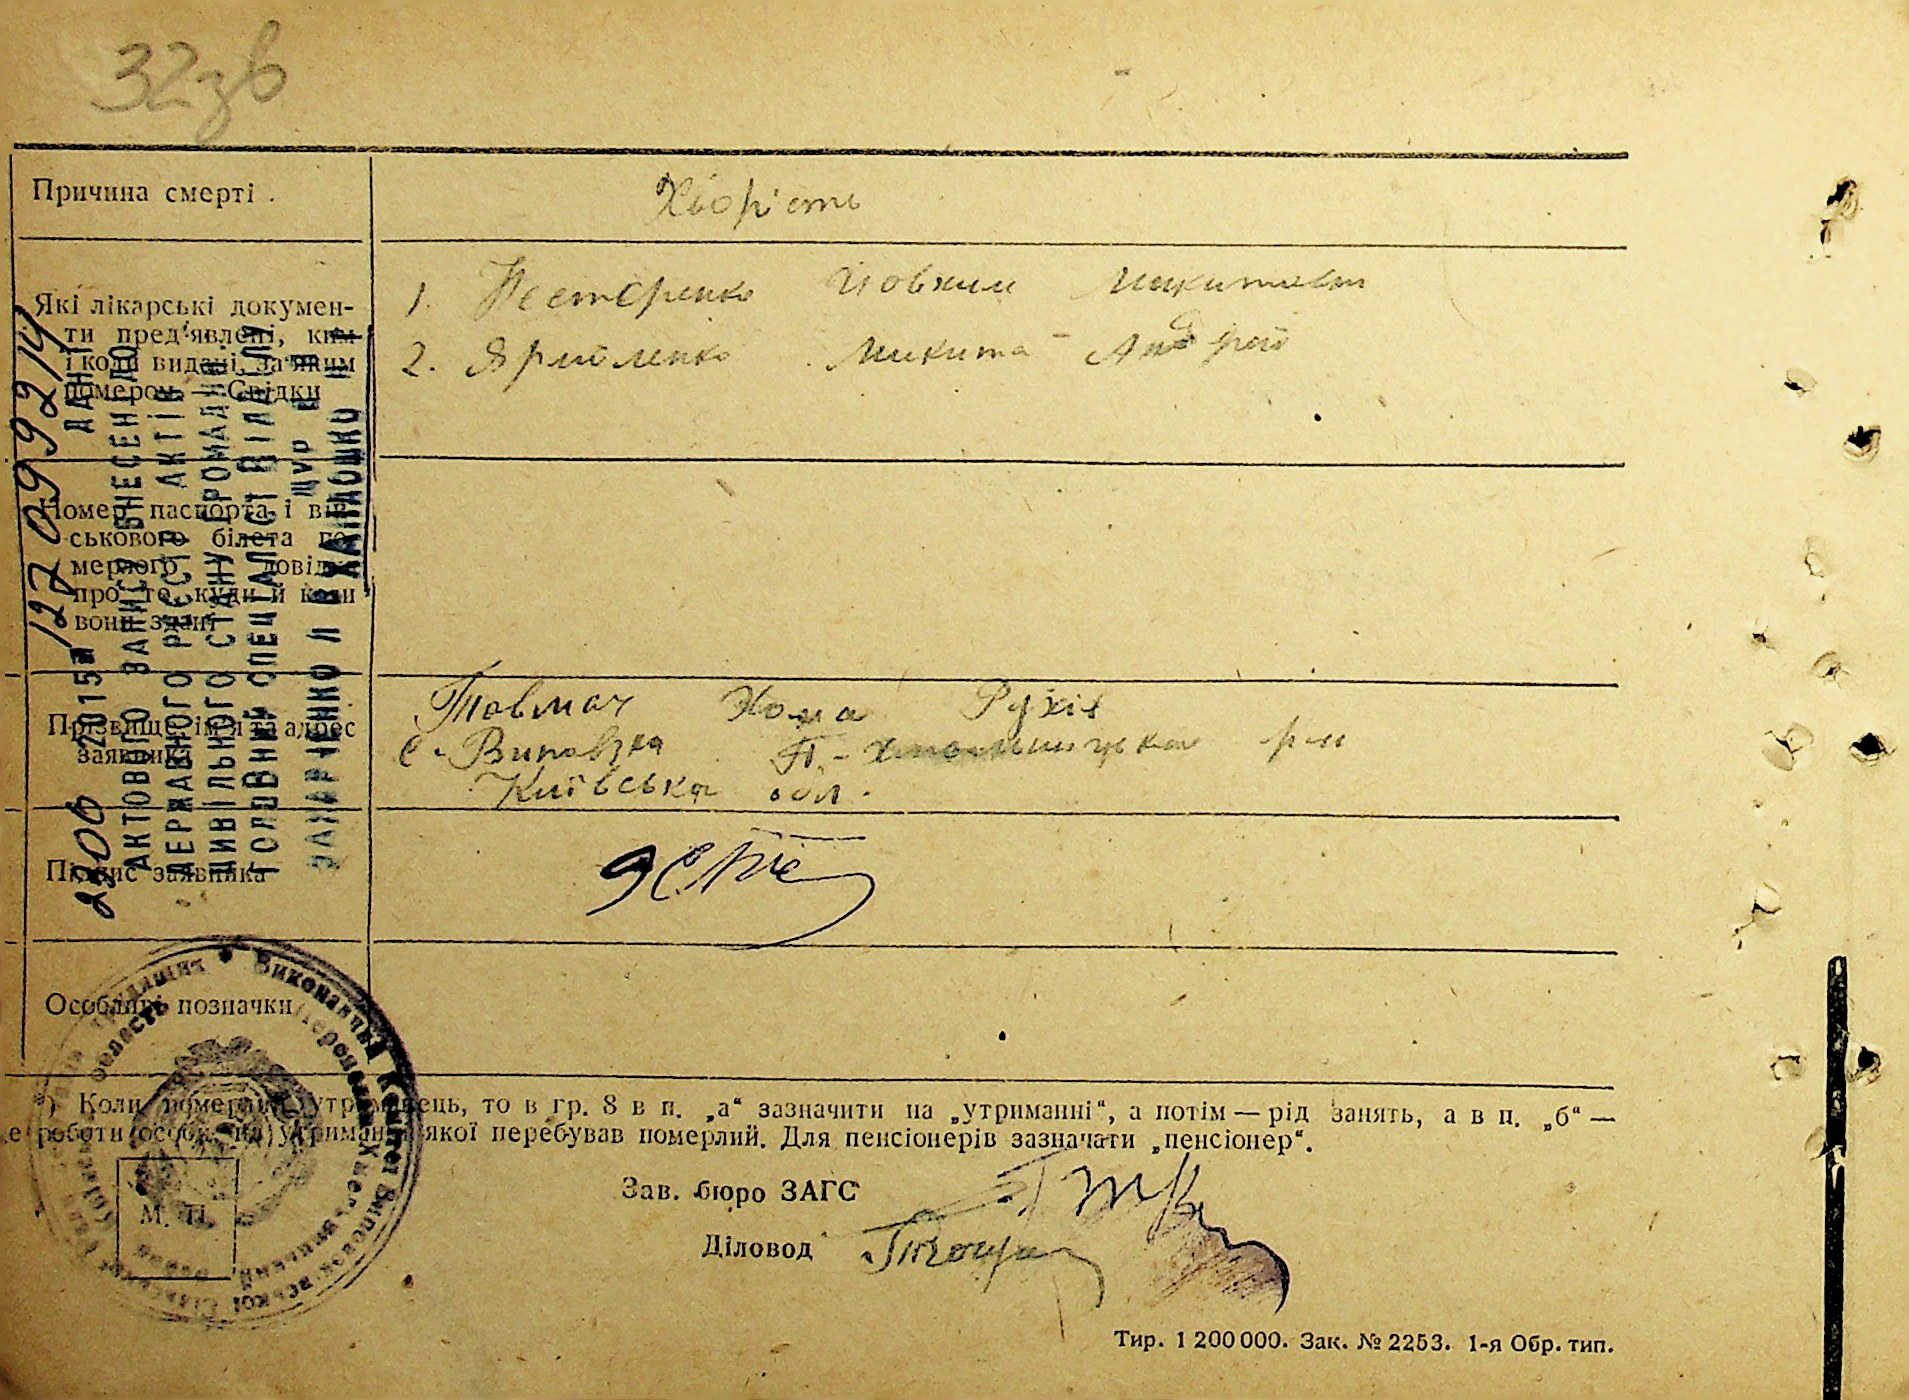 32зв
Причина смерті .
Хворість
Які лікарські докумен-
ти пред'явлені, ким
і коли видані, за яким
номером — Свідки
1. Нестеренко Йовхим Микитович
2. Ярмоленко Микита - Андрій
Номер паспорта і вій-
ськового білета по-
мерлого і довідка
про то, куди й коли
вони здані
Прізвище, ім'я та адрес
заявника
Товмач Хома
с. Виповзка П.-Хмельницька р-н
Київська обл.
Підпис заявника
Особливі позначки
*) Коли померлий утриманець, то в гр. 8 в п. „а“ зазначити на „утриманні“, а потім — рід занять, а в п. „б“ —
е роботи особи, на утриманні якої перебував померлий. Для пенсіонерів зазначати „пенсіонер“.
М. П.
Зав. бюро ЗАГС
Діловод
Тир. 1 200 000. Зак. № 2253. 1-я Обр. тип.
ДАНІ
АКТОВОГО ЗАПИСУ ВНЕСЕНІ ДО
ДЕРЖАВНОГО РЕЄСТРУ АКТІВ
ЦИВІЛЬНОГО СТАНУ ГРОМАДЯН
ГОЛОВНИЙ СПЕЦІАЛІСТ ВІДДІЛУ
2015
Виконавчий Комітет Виповзківської Сільської Ради
Переяслав-Хмельницький район
область